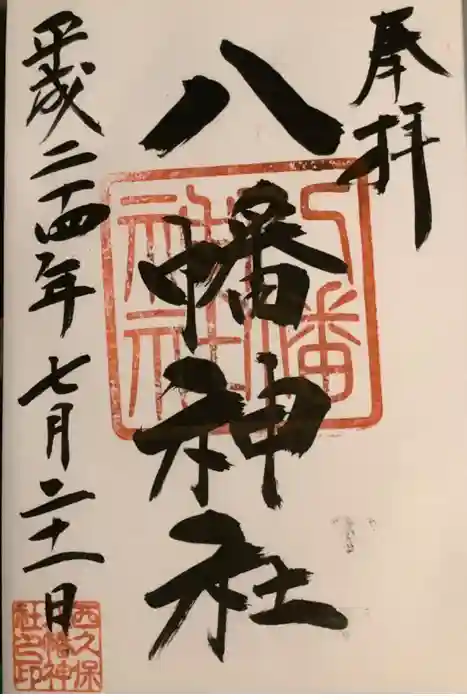 奉拝
八幡神社
八幡神社
平成二十四年七月二十一日
西久保
八幡神
社之印